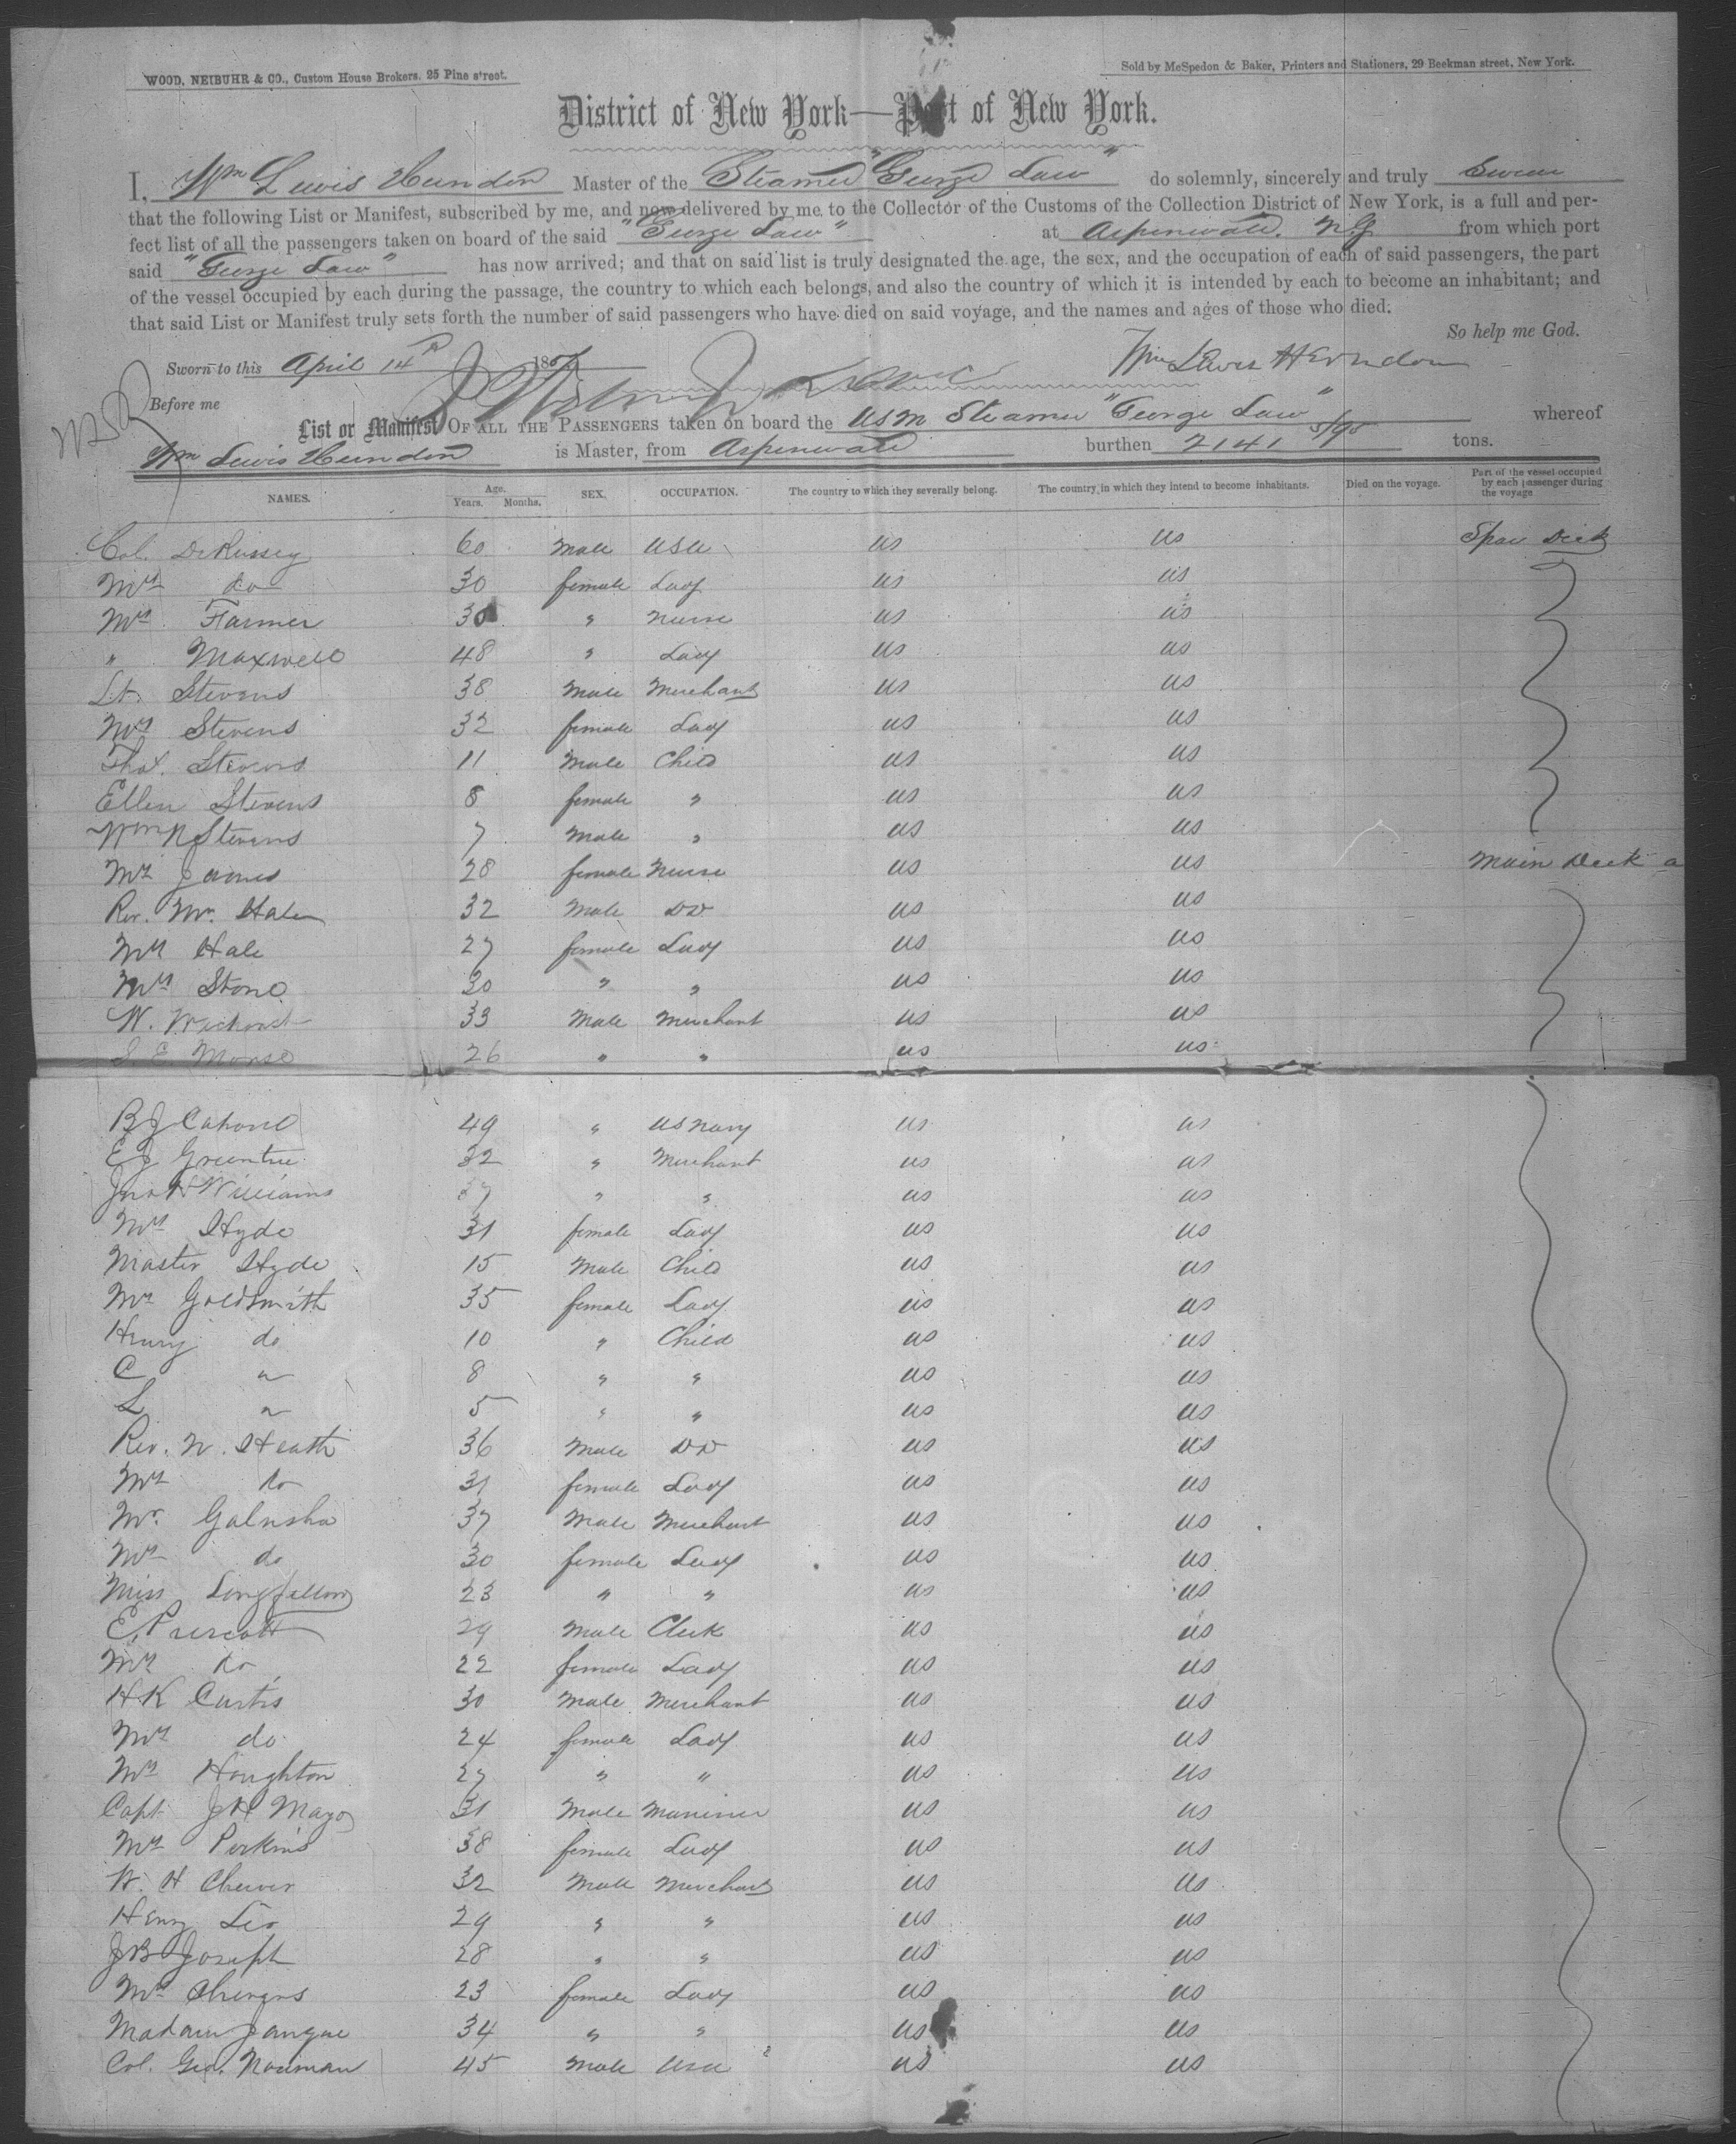 WOOD, NEIBUHR & CO., Custom House Brokers, 25 Pine street.
Sold by McSpedon & Baker, Printers and Stationers, 29 Beekman street, New York.
District of New York—Port of New York.
I, Wm Lewis Herndon Master of the Steamer "George Law" do solemnly, sincerely and truly Swear
that the following List or Manifest, subscribed by me, and now delivered by me to the Collector of the Customs of the Collection District of New York, is a full and per-
fect list of all the passengers taken on board of the said "George Law" at Aspinwall, N.G from which port
said "George Law" has now arrived; and that on said list is truly designated the age, the sex, and the occupation of each of said passengers, the part
of the vessel occupied by each during the passage, the country to which each belongs, and also the country of which it is intended by each to become an inhabitant; and
that said List or Manifest truly sets forth the number of said passengers who have died on said voyage, and the names and ages of those who died.
So help me God.
Sworn to this April 14th 185 Wm Lewis Herndon
Before me
List or Manifest OF ALL THE PASSENGERS taken on board the USM Steamer "George Law" whereof
Wm Lewis Herndon is Master, from Aspinwall burthen 2141 5/95 tons.
NAMES. Age. Years. Months. SEX. OCCUPATION. The country to which they severally belong. The country in which they intend to become inhabitants. Died on the voyage. Part of the vessel occupied by each passenger during the voyage
Col. DeRussey 60 Male USA US US Spar Deck
Mrs do 30 female Lady US US
Mrs Farmer 30 " Nurse US US
" Maxwell 48 " Lady US US
Lt. Stevens 38 Male Merchant US US
Mrs Stevens 32 female Lady US US
Stevens 11 Male Child US US
Ellen Stevens 8 female " US US
Wm N Stevens 7 Male " US US
Mrs James 28 female Nurse US US Main Deck a
Rev. Mr. Hale 32 Male DD US US
Mrs Hale 27 female Lady US US
Mrs Stone 30 " " US US
W. 33 Male Merchant US US
S. E Morse 26 " " US US
B J Cahone 49 " US Navy US US
E J Greentree 32 " Merchant US US
Jno H Williams 37 " " US US
Mrs Hyde 31 female Lady US US
Master Hyde 15 Male Child US US
Mrs Goldsmith 35 female Lady US US
Henry do 10 " Child US US
C " 8 " " US US
L " 5 " " US US
Rev. W. Heath 36 Male DD US US
Mrs do 31 female Lady US US
Mr. Galusha 37 Male Merchant US US
Mrs do 30 female Lady US US
Miss Longfellow 23 " " US US
E. Prescott 29 Male Clerk US US
Mrs do 22 female Lady US US
H K Curtis 30 Male Merchant US US
Mrs do 24 female Lady US US
Mrs Houghton 27 " " US US
Capt J H Mayo 31 Male Mariner US US
Mrs Perkins 38 female Lady US US
W. H Cheever 32 Male Merchant US US
Henry Leo 29 " " US US
J B Joseph 28 " " US US
Mrs 23 female Lady US US
Madam 34 " " US US
Col. Geo. Nauman 45 Male USA US US